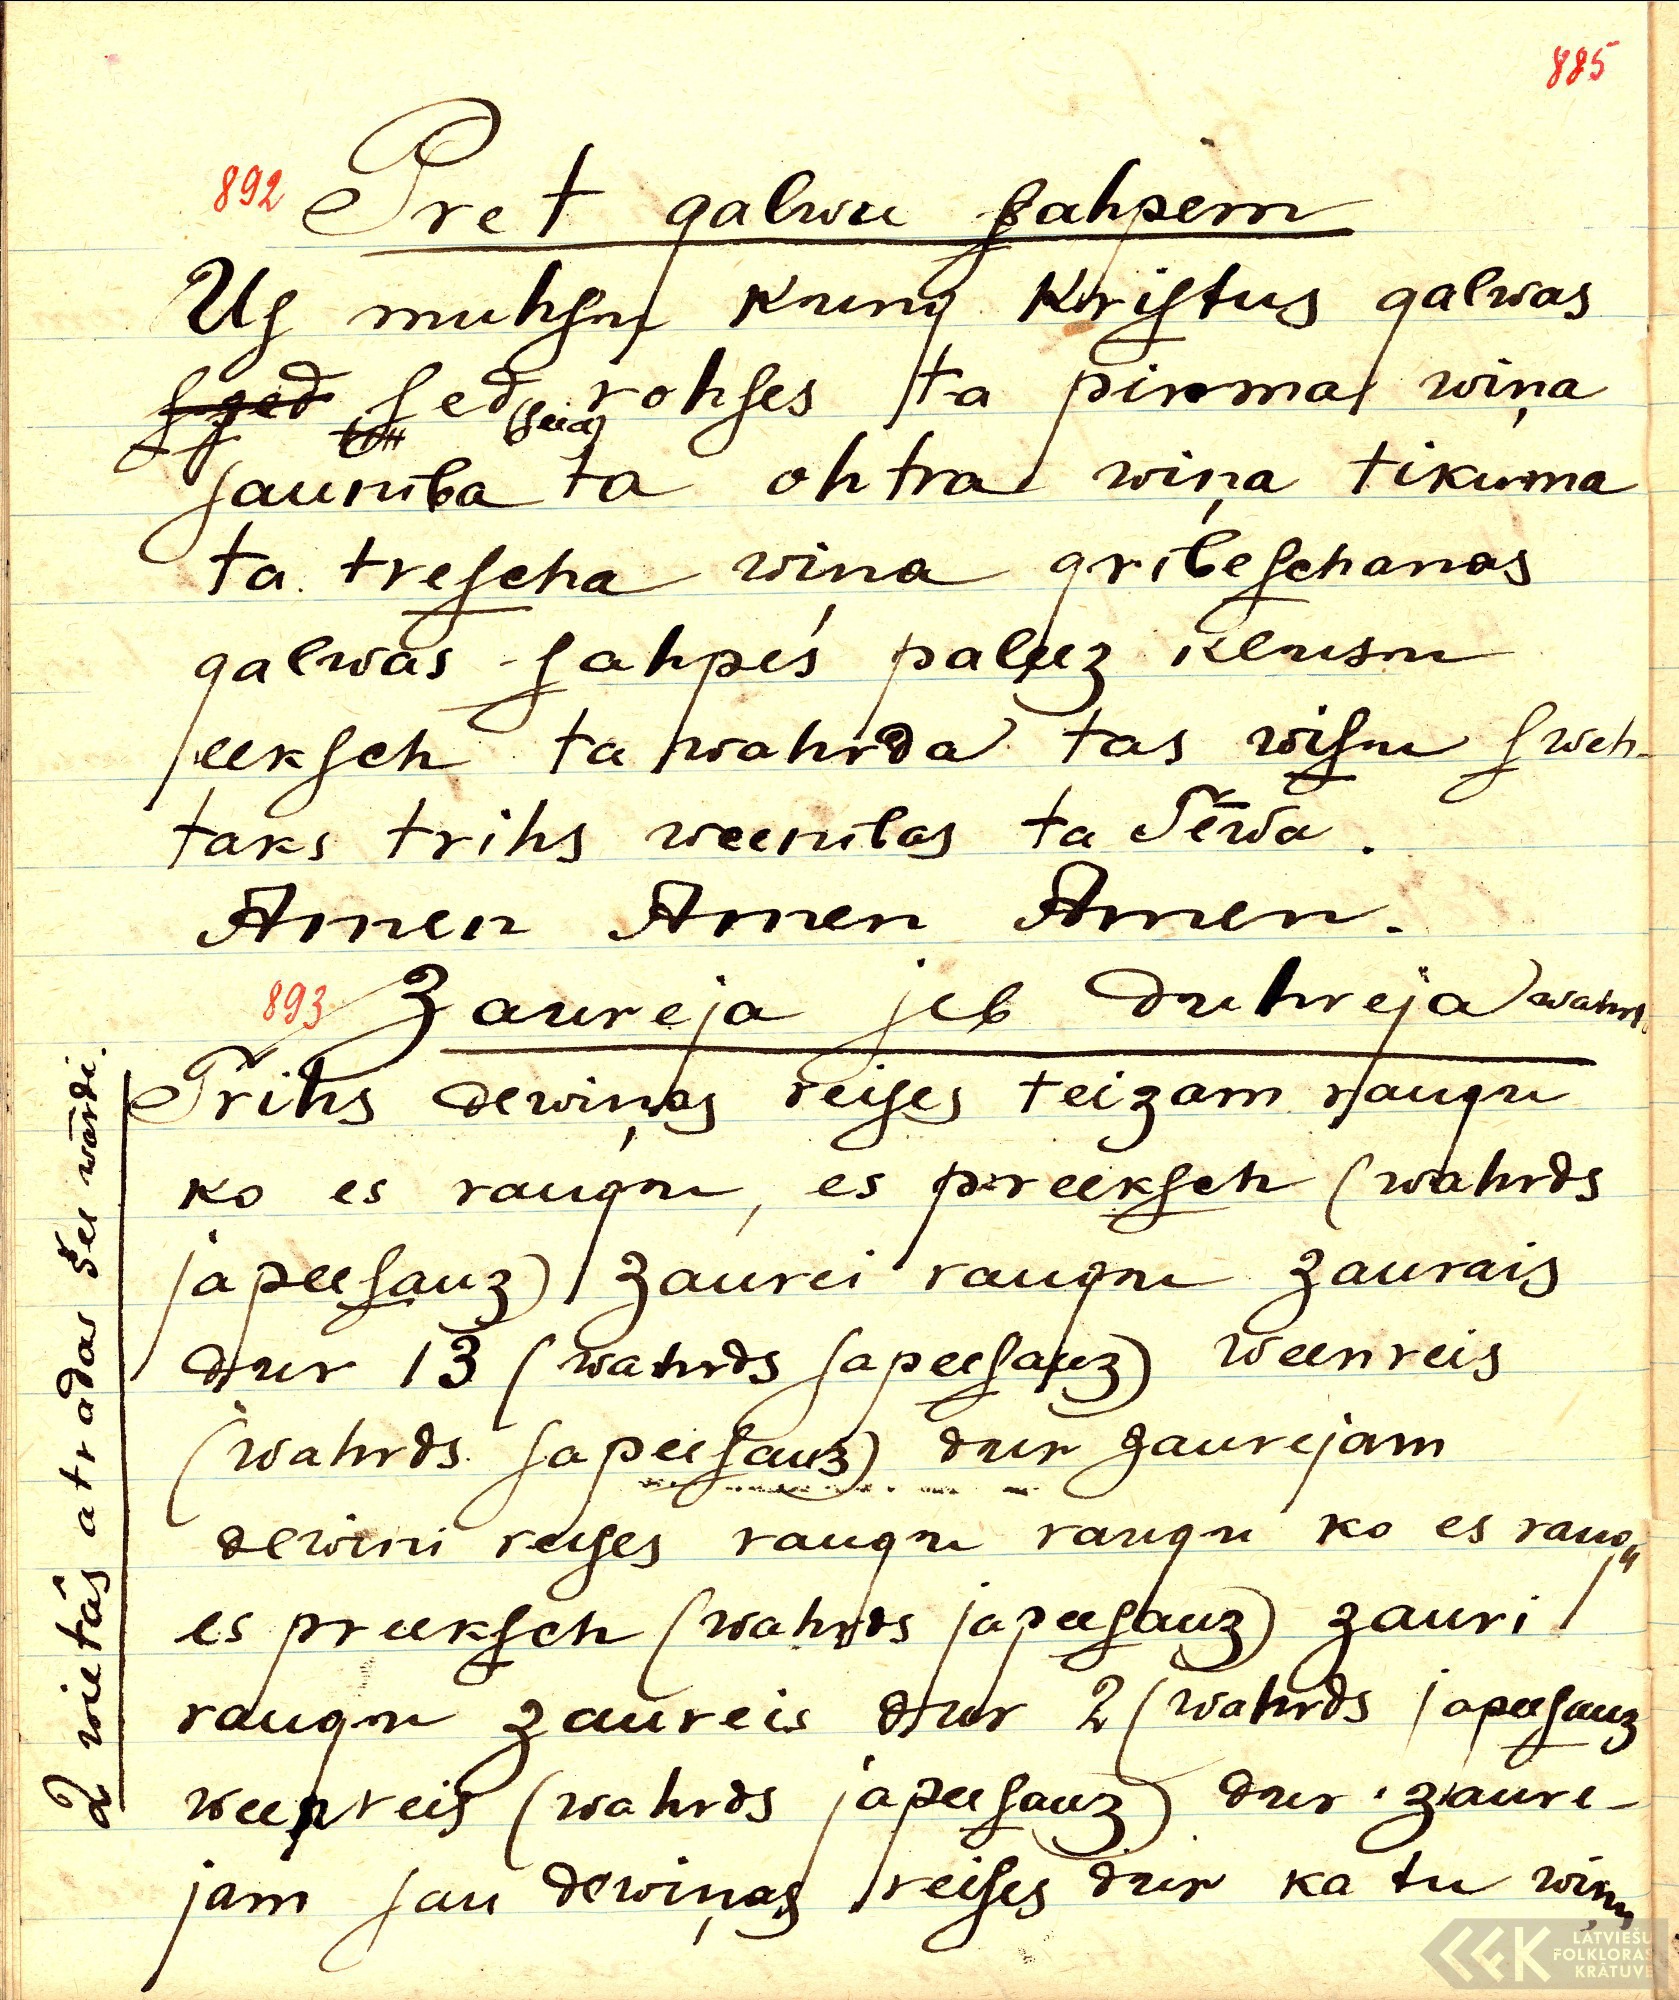 885
892 Pret galwu ſahpem
Uſ muhſu Kung Kriſtus galwas
ſed rohſes ta pirma wiņa
(ſeed)
jauniba ta ohtra wiņa tikuma
ta treſcha wiņa gribeſchanas
galwas ſahpes paleez kluſu
eekſch ta wahrda tas wiſu ſweh-
taks trihs weenibas ta Tēwa.
Amen Amen Amen.
893 Zaureja jeb duhreja wahrd.
Trihs dewiņas reiſes teizam raugu
ko es raugu, es preekſch (wahrds
japeeſauz) zaurei raugu zaurais
dur 13 (wahrds japeeſauz) weenreis
(wahrds japeeſauz) dur zaurejam
dewini reiſes raugu raugu ko es raugu
es preekſch (wahrds japeeſauz) zauri
raugu zaureis dur 2 (wahrds japeeſauz
weenreis (wahrds japeeſauz) dur zaure-
jam jau dewiņas reiſes dur ka tu wiņu
2 vietâs atradas šee wārdi.
LATVIEŠU
FOLKLORAS
KRĀTUVE